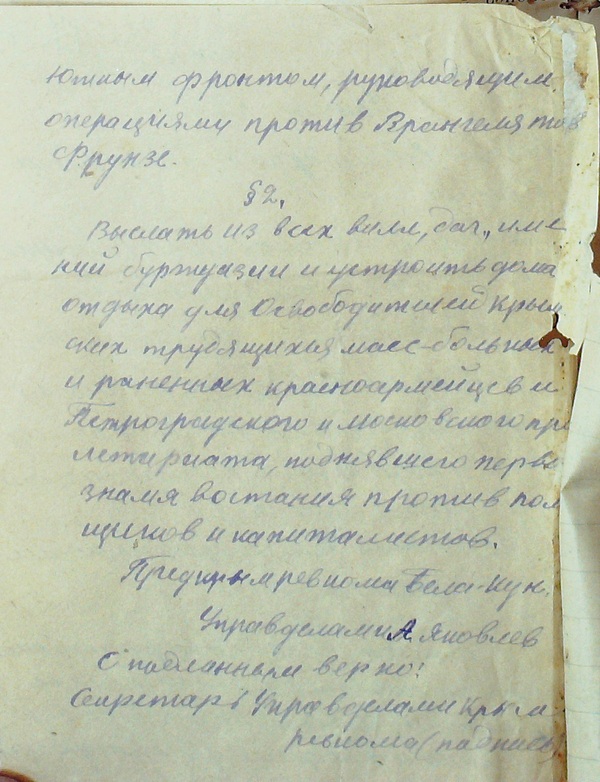 южным фронтом, руководящим
операциями против Врангеля тов
Фрунзе.
§2.
Выслать из всех вилл, дач, име
ний буржуазии и устроить дома
отдыха для Освободителей Крым
ских трудящихся масс-больных
и раненных красноармейцев и
Петроградского и московского про
летариата, поднявшего перво
знамя востания против пом
щиков и капиталистов.
Предкрымревкома Бела-Кун.
Управделами А. Яковлев
С подланным верно:
Секретарь Управделами Крым
ревкома (подпись)